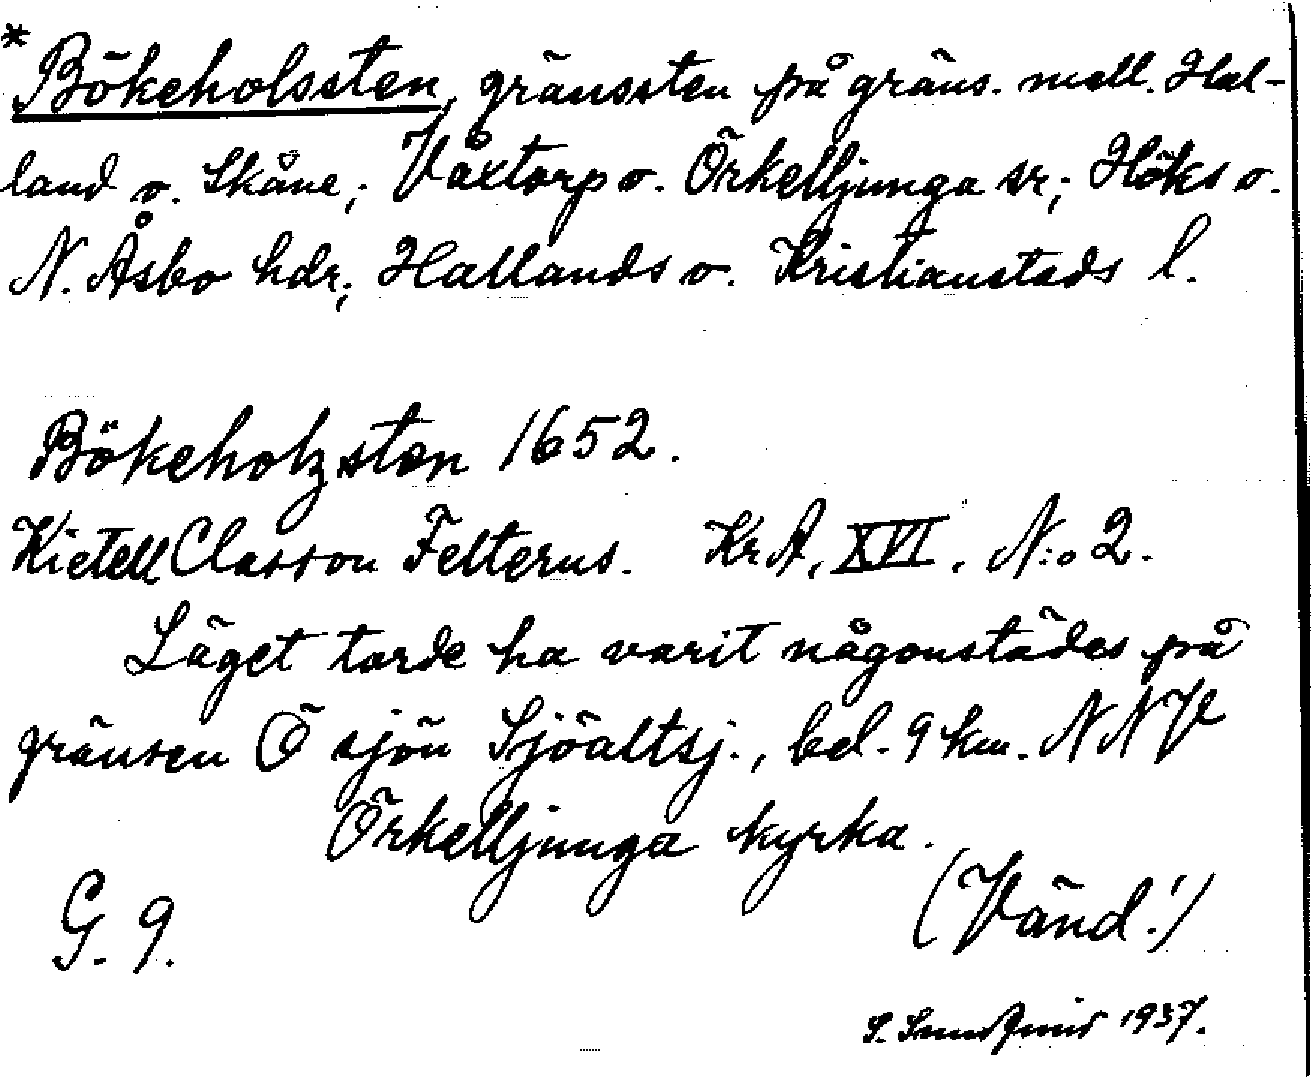 *Bökeholssten, gränssten på gräns. mell. Hal-
land o. Skåne; Våxtorp o. Örkelljunga sr; Höks o.
N. Åsbo hdr; Hallands o. Kristianstads l.
Bökeholzsten 1652.
Kietell Classon Felterus. KrA, XVI, N:o 2.
Läget torde ha varit någonstädes på
gränsen Ö sjön Sjöaltsj., bel. 9 km. NNV
Örkelljunga kyrka.
G. 9.
(Vänd!)
S. 1937.